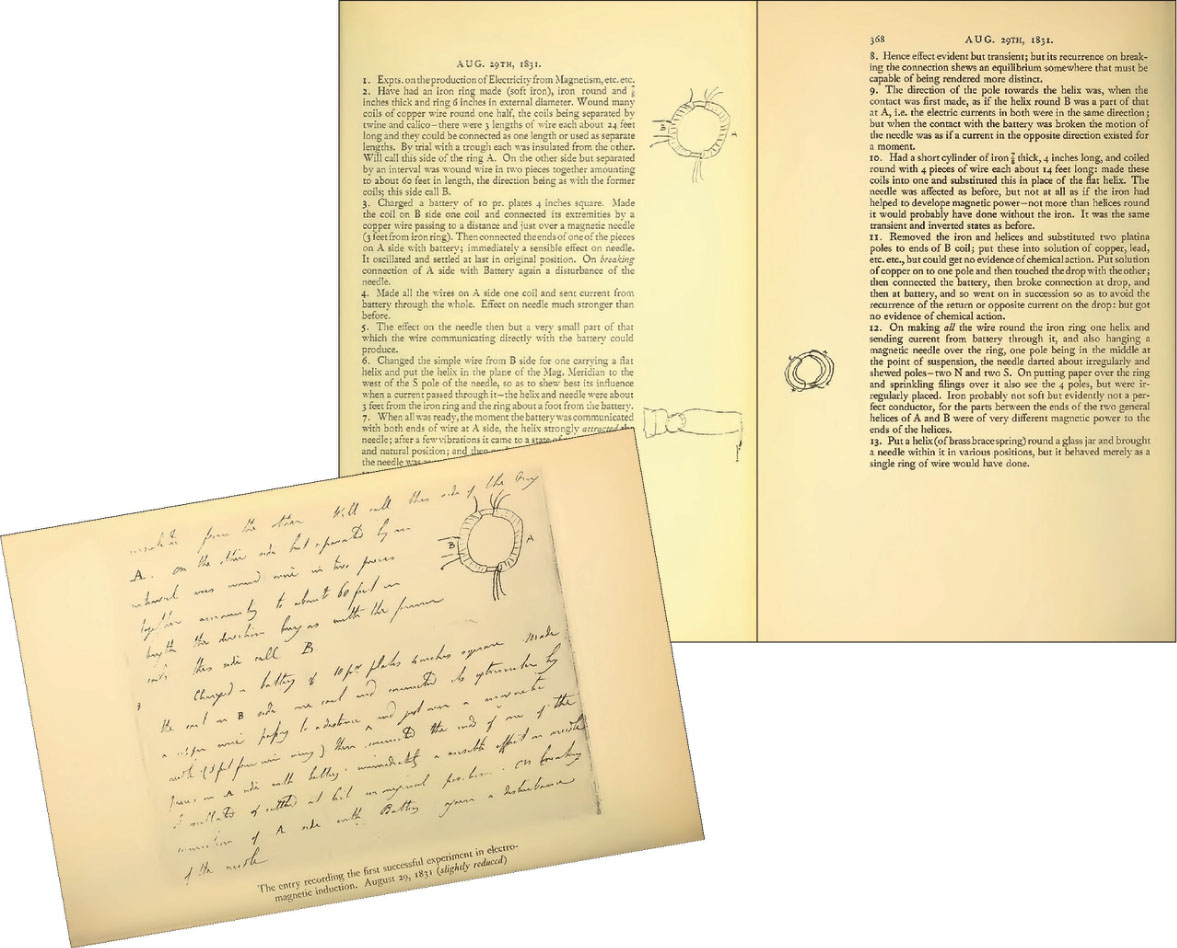 AUG. 29TH, 1831.
1. Expts. on the production of Electricity from Magnetism, etc. etc.
2. Have had an iron ring made (soft iron), iron round and ⅞
inches thick and ring 6 inches in external diameter. Wound many
coils of copper wire round one half, the coils being separated by
twine and calico—there were 3 lengths of wire each about 24 feet
long and they could be connected as one length or used as separate
lengths. By trial with a trough each was insulated from the other.
Will call this side of the ring A. On the other side but separated
by an interval was wound wire in two pieces together amounting
to about 60 feet in length, the direction being as with the former
coils; this side call B.
3. Charged a battery of 10 pr. plates 4 inches square. Made
the coil on B side one coil and connected its extremities by a
copper wire passing to a distance and just over a magnetic needle
(3 feet from iron ring). Then connected the ends of one of the pieces
on A side with battery; immediately a sensible effect on needle.
It oscillated and settled at last in original position. On breaking
connection of A side with Battery again a disturbance of the
needle.
4. Made all the wires on A side one coil and sent current from
battery through the whole. Effect on needle much stronger than
before.
5. The effect on the needle then but a very small part of that
which the wire communicating directly with the battery could
produce.
6. Changed the simple wire from B side for one carrying a flat
helix and put the helix in the plane of the Mag. Meridian to the
west of the S pole of the needle, so as to shew best its influence
when a current passed through it—the helix and needle were about
3 feet from the iron ring and the ring about a foot from the battery.
7. When all was ready, the moment the battery was communicated
with both ends of wire at A side, the helix strongly attracted the
needle; after a few vibrations it came to a state of
and natural position; and then
the needle was
B A
368 AUG. 29TH, 1831.
8. Hence effect evident but transient; but its recurrence on break-
ing the connection shews an equilibrium somewhere that must be
capable of being rendered more distinct.
9. The direction of the pole towards the helix was, when the
contact was first made, as if the helix round B was a part of that
at A, i.e. the electric currents in both were in the same direction;
but when the contact with the battery was broken the motion of
the needle was as if a current in the opposite direction existed for
a moment.
10. Had a short cylinder of iron ⅞ thick, 4 inches long, and coiled
round with 4 pieces of wire each about 14 feet long: made these
coils into one and substituted this in place of the flat helix. The
needle was affected as before, but not at all as if the iron had
helped to develope magnetic power—not more than helices round
it would probably have done without the iron. It was the same
transient and inverted states as before.
11. Removed the iron and helices and substituted two platina
poles to ends of B coil; put these into solution of copper, lead,
etc. etc., but could get no evidence of chemical action. Put solution
of copper on to one pole and then touched the drop with the other;
then connected the battery, then broke connection at drop, and
then at battery, and so went on in succession so as to avoid the
recurrence of the return or opposite current on the drop: but got
no evidence of chemical action.
12. On making all the wire round the iron ring one helix and
sending current from battery through it, and also hanging a
magnetic needle over the ring, one pole being in the middle at
the point of suspension, the needle darted about irregularly and
shewed poles—two N and two S. On putting paper over the ring
and sprinkling filings over it also see the 4 poles, but were ir-
regularly placed. Iron probably not soft but evidently not a per-
fect conductor, for the parts between the ends of the two general
helices of A and B were of very different magnetic power to the
ends of the helices.
13. Put a helix (of brass brace spring) round a glass jar and brought
a needle within it in various positions, but it behaved merely as a
single ring of wire would have done.
from the other Will call this side of the ring
A. On the other side but separated by an
interval was wound wire in two pieces
together amounting to about 60 feet in
length the direction being as with the former
coils this side call B
B A
Charged a battery of 10 pr plates 4 inches square Made
the coil on B side one coil and connected its extremities by
a copper wire passing to a distance and just over a magnetic
needle (3 feet from iron ring) then connected the ends of one of the
pieces on A side with battery immediately a sensible effect on needle
It oscillated & settled at last in original position. On breaking
connection of A side with Battery again a disturbance
of the needle
The entry recording the first successful experiment in electro-
magnetic induction. August 29, 1831 (slightly reduced)